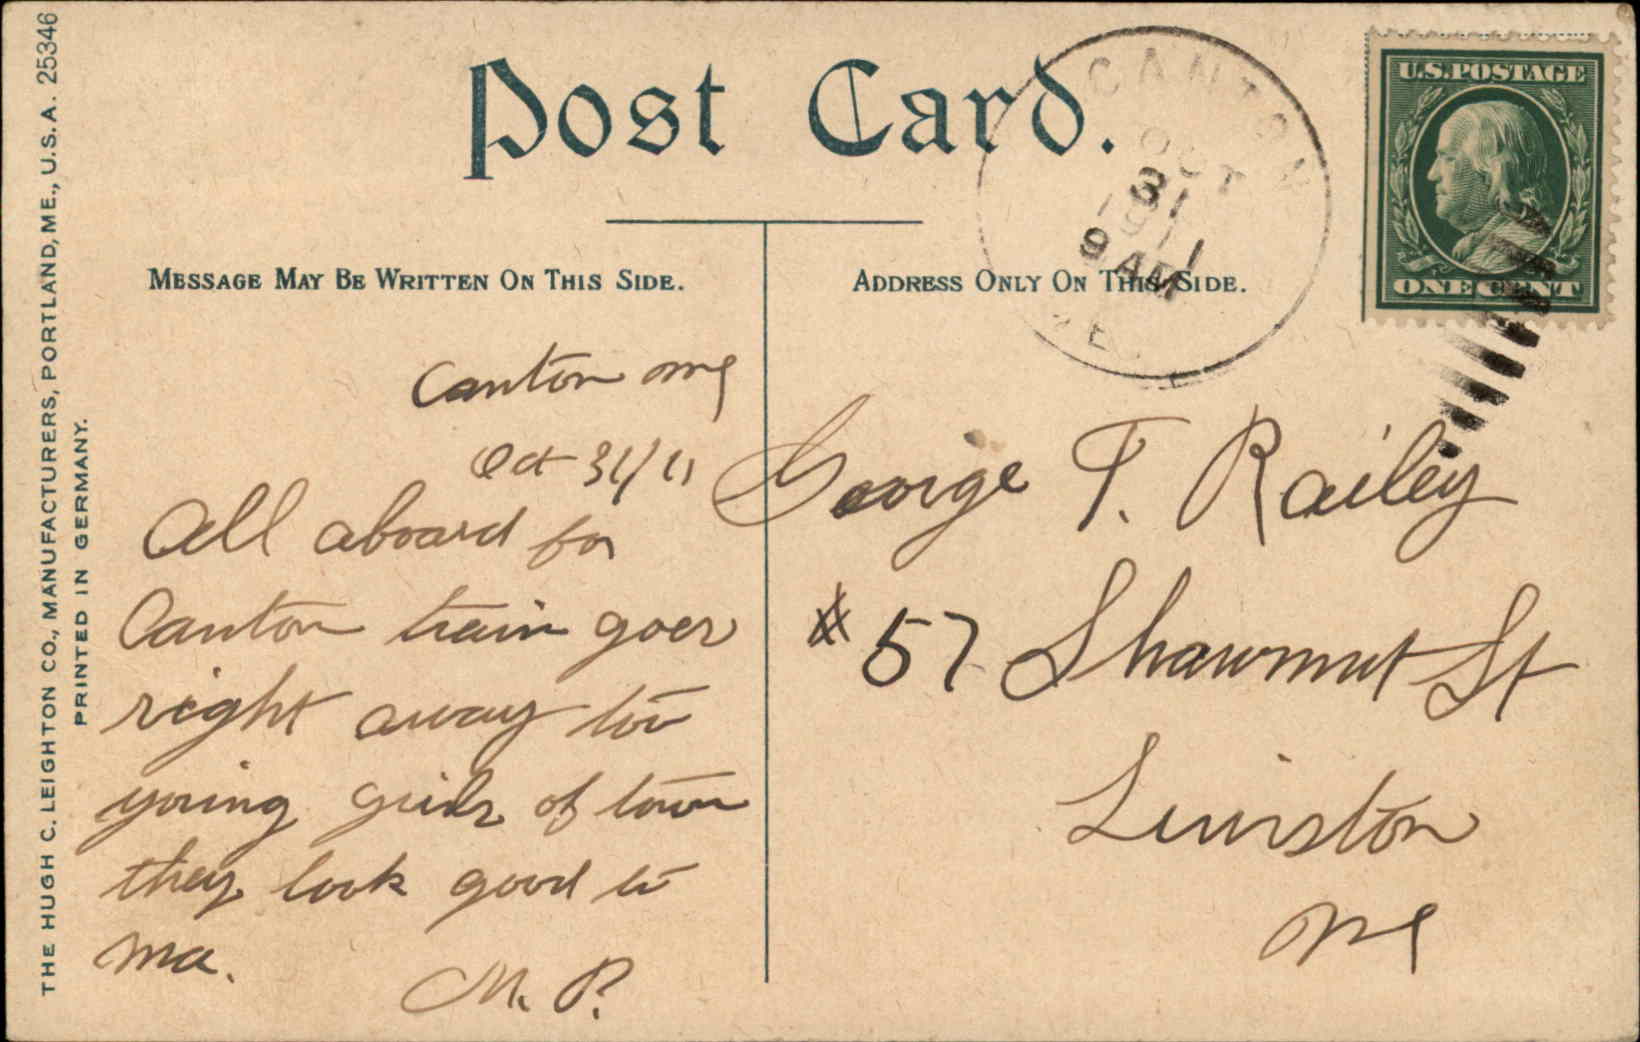 THE HUGH C. LEIGHTON CO., MANUFACTURERS, PORTLAND, ME., U.S.A. 25346
PRINTED IN GERMANY.
Post Card.
CANTON
OCT
31
1911
9 AM
ME.
U.S. POSTAGE
ONE CENT
MESSAGE MAY BE WRITTEN ON THIS SIDE.
Canton Me
Oct 31/11
All aboard for
Canton train goes
right away too
young girls of town
they look good to
ma.
M. P.
ADDRESS ONLY ON THIS SIDE.
George T. Railey
# 57 Shawmut St
Lewiston
Me